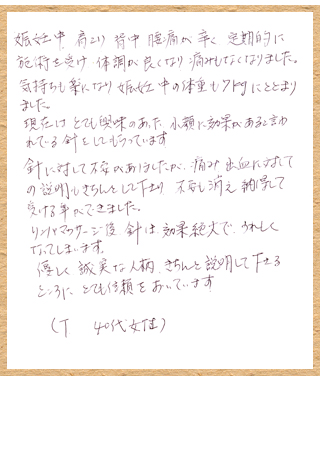 妊娠中、肩こり 背中 腰痛が辛く 定期的に
施術を受け 体調が良くなり痛みもなくなりました。
気持ちも楽になり 妊娠中の体重も7kgにとどまり
ました。
現在は とても興味のあった、小顔に効果があると言わ
れている針をしてもらっています
針に対して不安がありましたが、痛み 出血に対して
の説明もきちんとして下さり 不安も消え 納得して
受ける事ができました。
リンパマッサージ後 針は効果絶大で、うれしく
なってしまいます。
優しく 誠実な人柄、きちんと説明して下さる
ところに とても信頼をおいています
(T 40代女性)